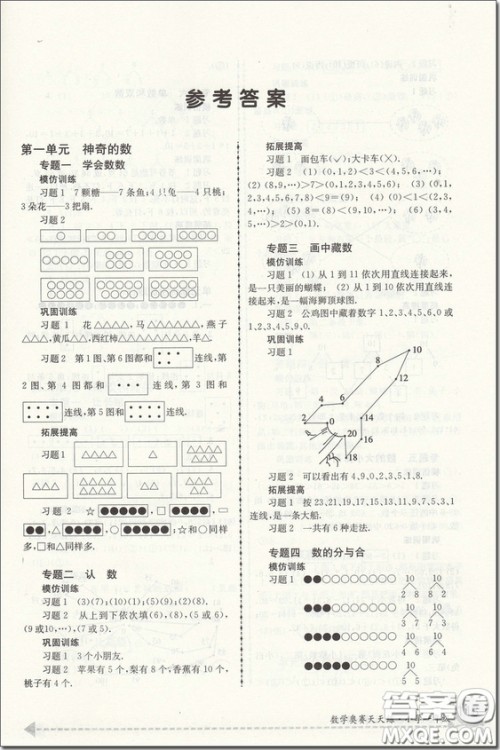 参考答案
第一单元 神奇的数
专题一 学会数数
模仿训练
习题1 7颗糖——7条鱼;4只兔——4只桃;
3朵花——3把扇.
习题2
巩固训练
习题1 花△△△△,马△△△△△,燕子
习题2 第1图、第6图都和 连线,第
2图、第4图都和 连线,第3图和
连线,第5图和 连线.
拓展提高
习题1
习题2 ☆●●●●●,□●●●●●●,
同样多,□和△同样多.
专题二 认 数
模仿训练
习题1 (3)(7);(10)(1);(5)(9);(2)(8).
习题2 从上到下依次填(6),(8),(5或6),
(9或10,…),(7或5).
巩固训练
习题1 3个小朋友.
习题2 苹果有5个,梨有8个,香蕉有10个,
桃子有4个.
拓展提高
习题1 面包车(√);大卡车(×).
习题2 (1)(0,1,2)<3<(4,5,6,…);
(2)(8,9,10,…)>7>(0,1,2,3,4,5,6); (3)(0,1,
2,3,4,5,6,7,8)<9=(9); (4)(0)<1<(2,3,
4,…); (5)(8)=(8)<(9,10,…); (6)(3,4,
5,…)>2>(0,1).
专题三 画中藏数
模仿训练
习题1 (1)从1到11依次用直线连接起来,
是一只美丽的蝴蝶; (2)从1到10依次用直线连
接起来,是一幅海狮顶球图.
习题2 公鸡图中藏着数字0,1,2,3,4,6或
1,2,3,4,5,9,0.
巩固训练
习题1
10
8
12
4
6
2
0
14
20
16
18
习题2 可以看出有4,9,0,2,3,5,1,8.
拓展提高
习题1 按23,21,19,17,15,13,11,9,7,5,3,1
连线,是一条大船.
习题2 一共有6种走法.
专题四 数的分与合
模仿训练
习题1
10 10
2 8 8 2
10 10
3 7 7 3
10 10
4 6 6 4
10 10
MXQE.COM